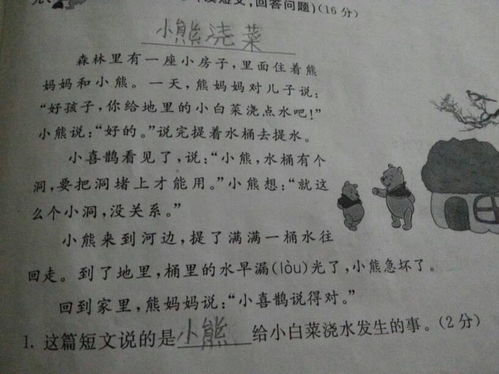 短文,回答问题)(16分)
小熊浇菜
森林里有一座小房子,里面住着熊
妈妈和小熊。一天,熊妈妈对儿子说:
“好孩子,你给地里的小白菜浇点水吧!”
小熊说:“好的。”说完提着水桶去提水。
小喜鹊看见了,说:“小熊,水桶有个
洞,要把洞堵上才能用。”小熊想:“就这
么个小洞,没关系。”
小熊来到河边,提了满满一桶水往
回走。到了地里,桶里的水早漏(lòu)光了,小熊急坏了。
回到家里,熊妈妈说:“小喜鹊说得对。”
1. 这篇短文说的是小熊给小白菜浇水发生的事。(2分)